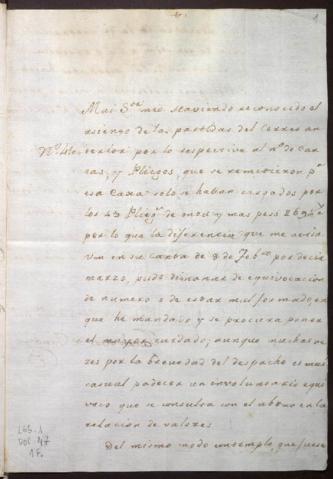 1
Mui Sor mio haviendo reconocido el
asiento de las partidas del Correo an
terior por lo respectivo al no de Car
tas, y Pliegos, que se remitieron pa
esa Caxa solo se haban cargados por
los 49 Pliegs de onza y mas pess
por lo que la diferencia que me avisa
Vm en su Carta de 8 de Febro por decir
marzo, pudo dimanar de equivocacion
de numero o de estar mal formado
que he mandado y se procura poner
el mayor cuidado; aunque muchas ve
zes por la brevedad del despacho es mui
casual padecer un involuntario equi
voco que se consulta con el abono en la
relacion de valores.
Del mismo modo contemplo que
LEG. 1
DOC. 47
1F.